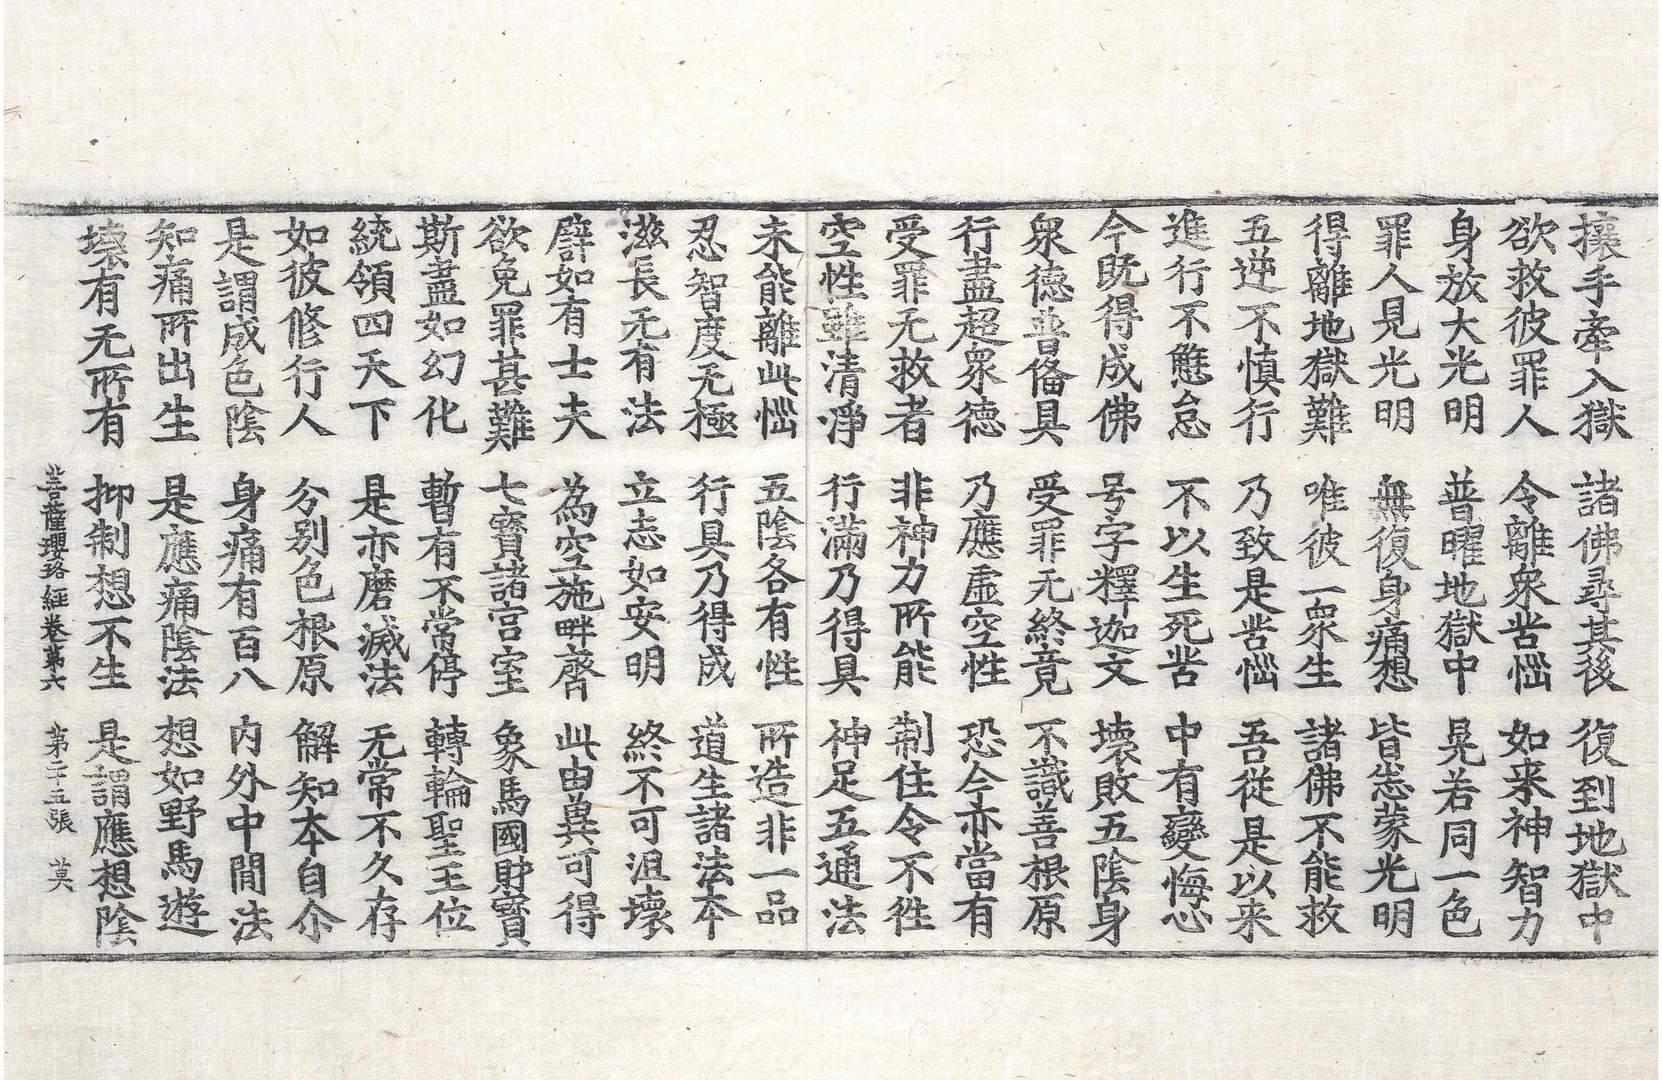 攘手牽入獄 諸佛尋其後 復到地獄中
欲救彼罪人 令離衆苦惱 如来神智力
身放大光明 普曜地獄中 晃若同一色
罪人見光明 無復身痛想 皆悉蒙光明
得離地獄難 唯彼一衆生 諸佛不能救
五逆不慎行 乃致是苦惱 吾從是以来
進行不懈怠 不以生死苦 中有變悔心
今既得成佛 号字釋迦文 壞敗五陰身
衆德普俻具 受罪无終竟 不識善根原
行盡超衆德 乃應虛空性 恐今亦當有
受罪无救者 非神力所能 制住令不徃
空性雖清淨 行滿乃得具 神足五通法
未能離此惱 五陰各有性 所造非一品
忍智度无極 行具乃得成 道生諸法本
滋長无有法 立志如安明 終不可沮壞
譬如有士夫 為空施畔齊 此由異可得
欲免罪甚難 七寶諸宮室 象馬國財寶
斯盡如幻化 暫有不常停 轉輪聖王位
統領四天下 是亦磨滅法 无常不久存
如彼修行人 分別色根原 解知本自尒
是謂成色陰 身痛有百八 內外中間法
知痛所出生 是應痛陰法 想如野馬遊
壞有无所有 抑制想不生 是謂應想陰
菩薩瓔珞經卷第六 第二十五張 莫